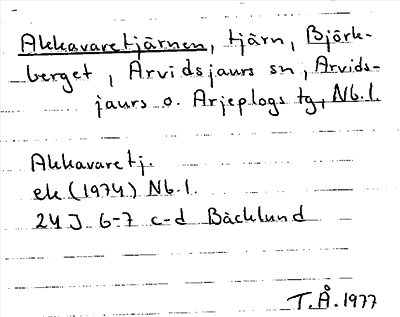 Akkavaretjärnen, tjärn, Björk-
berget, Arvidsjaurs sn, Arvids-
jaurs o. Arjeplogs tg, Nb.l.
Akkavaretj.
ek (1974) Nb.l.
24J 6-7 c-d Bäcklund
T.Å. 1977